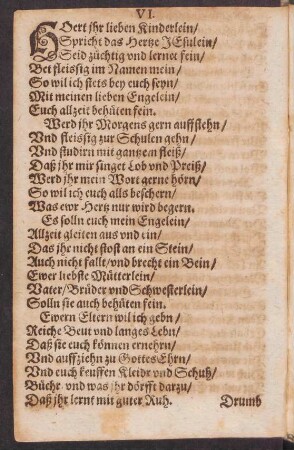 VI.
HOert jhr lieben Kinderlein/
Spricht das Hertze JEsulein/
Seid züchtig vnd lernet fein/
Bet fleissig im Namen mein/
So wil ich stets bey euch seyn/
Mit meinen lieben Engelein/
Euch allzeit behüten fein.
Werd jhr Morgens gern auffstehn/
Vnd fleissig zur Schulen gehn/
Vnd studirn mit gantzem fleiß/
Daß jhr mir singet Lob vnd Preiß/
Werd jhr mein Wort gerne hörn/
So wil ich euch alls beschern/
Was ewr Hertz nur wird begern.
Es solln euch mein Engelein/
Allzeit gleiten aus vnd ein/
Das jhr nicht stost an ein Stein/
Auch nicht fallt/vnd brecht ein Bein/
Ewer liebste Mütterlein/
Vater/Brüder vnd Schwesterlein/
Solln sie auch behüten fein.
Ewern Eltern wil ich gebn/
Reiche Beut vnd langes Lebn/
Daß sie euch können ernehrn/
Vnd auffziehn zu Gottes Ehrn/
Vnd euch keuffen Kleidr vnd Schuh/
Büchr vnd was jhr dörfft darzu/
Daß jhr lernt mit guter Ruh.
Drumb